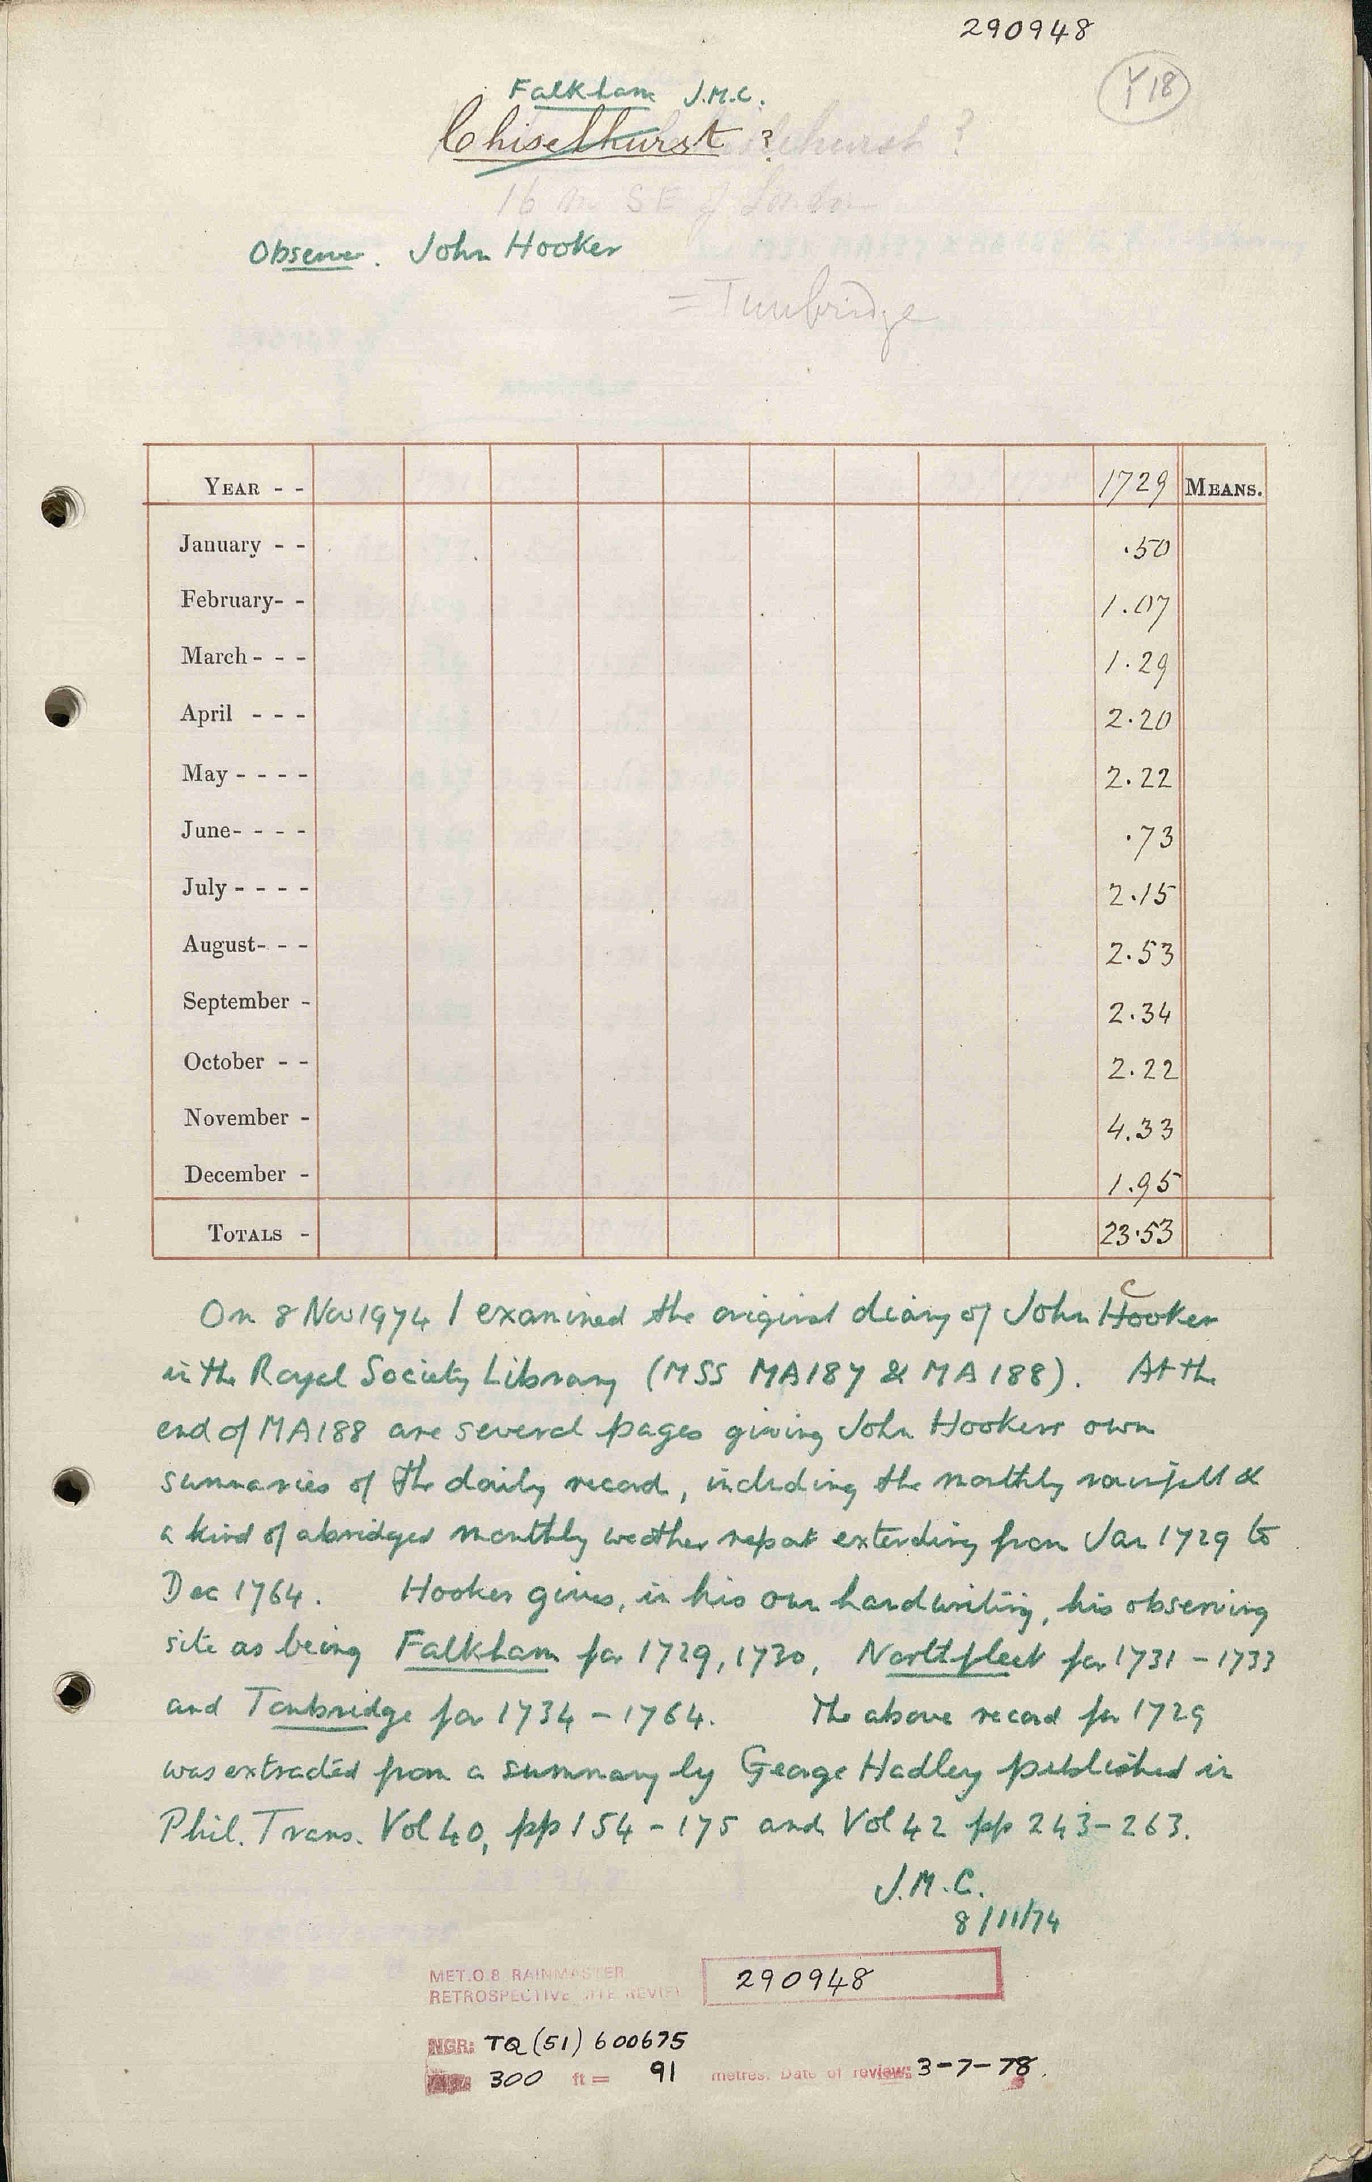 290948
Y18
Falkham J.M.C.
Chiselhurst ?
16 m SE of London
Observer. John Hooker
= Tunbridge
YEAR - - 1729 MEANS.
January - - .50
February- - 1.07
March - - - 1.29
April - - - 2.20
May - - - - 2.22
June- - - - .73
July - - - - 2.15
August- - - 2.53
September - 2.34
October - - 2.22
November - 4.33
December - 1.95
TOTALS - 23.53
On 8 Nov 1974 I examined the original diary of John Hooker
in the Royal Society Library (MSS MA187 & MA188). At the
end of MA188 are several pages giving John Hookers own
summaries of the daily record, including the monthly rainfall &
a kind of abridged monthly weather report extending from Jan 1729 to
Dec 1764. Hooker gives, in his own handwriting, his observing
site as being Falkham for 1729, 1730, Northfleet for 1731 - 1733
and Tonbridge for 1734 - 1764. The above record for 1729
was extracted from a summary by George Hadley published in
Phil. Trans. Vol 40, pp 154 - 175 and Vol 42 pp 243 - 263.
J.M.C.
8/11/74
MET.O.8 RAINMASTER
RETROSPECTIVE SITE REVIEW
290948
NGR: TQ (51) 600675
300 ft = 91 metres. Date of review: 3-7-78.